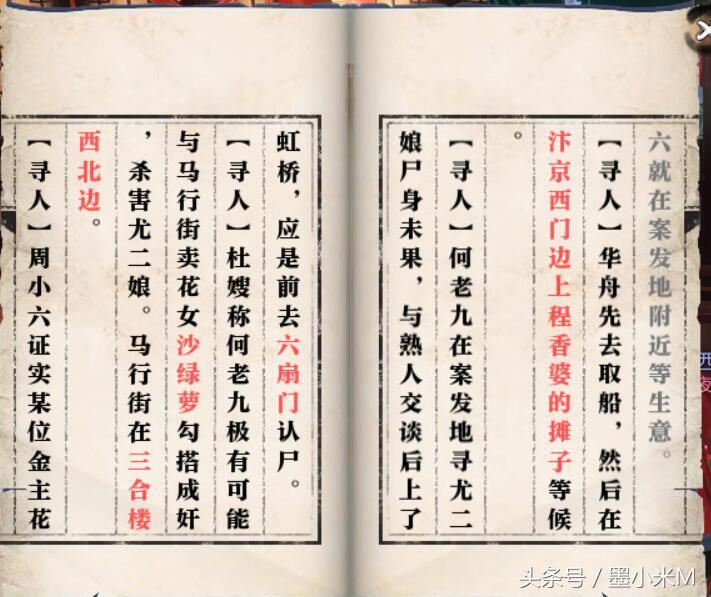 六就在案发地附近等生意。
【寻人】华舟先去取船，然后在
汴京西门边上程香婆的摊子等候
。
【寻人】何老九在案发地寻尤二
娘尸身未果，与熟人交谈后上了
虹桥，应是前去六扇门认尸。
【寻人】杜嫂称何老九极有可能
与马行街卖花女沙绿萝勾搭成奸
，杀害尤二娘。马行街在三合楼
西北边。
【寻人】周小六证实某位金主花
头条号 / 墨小米M